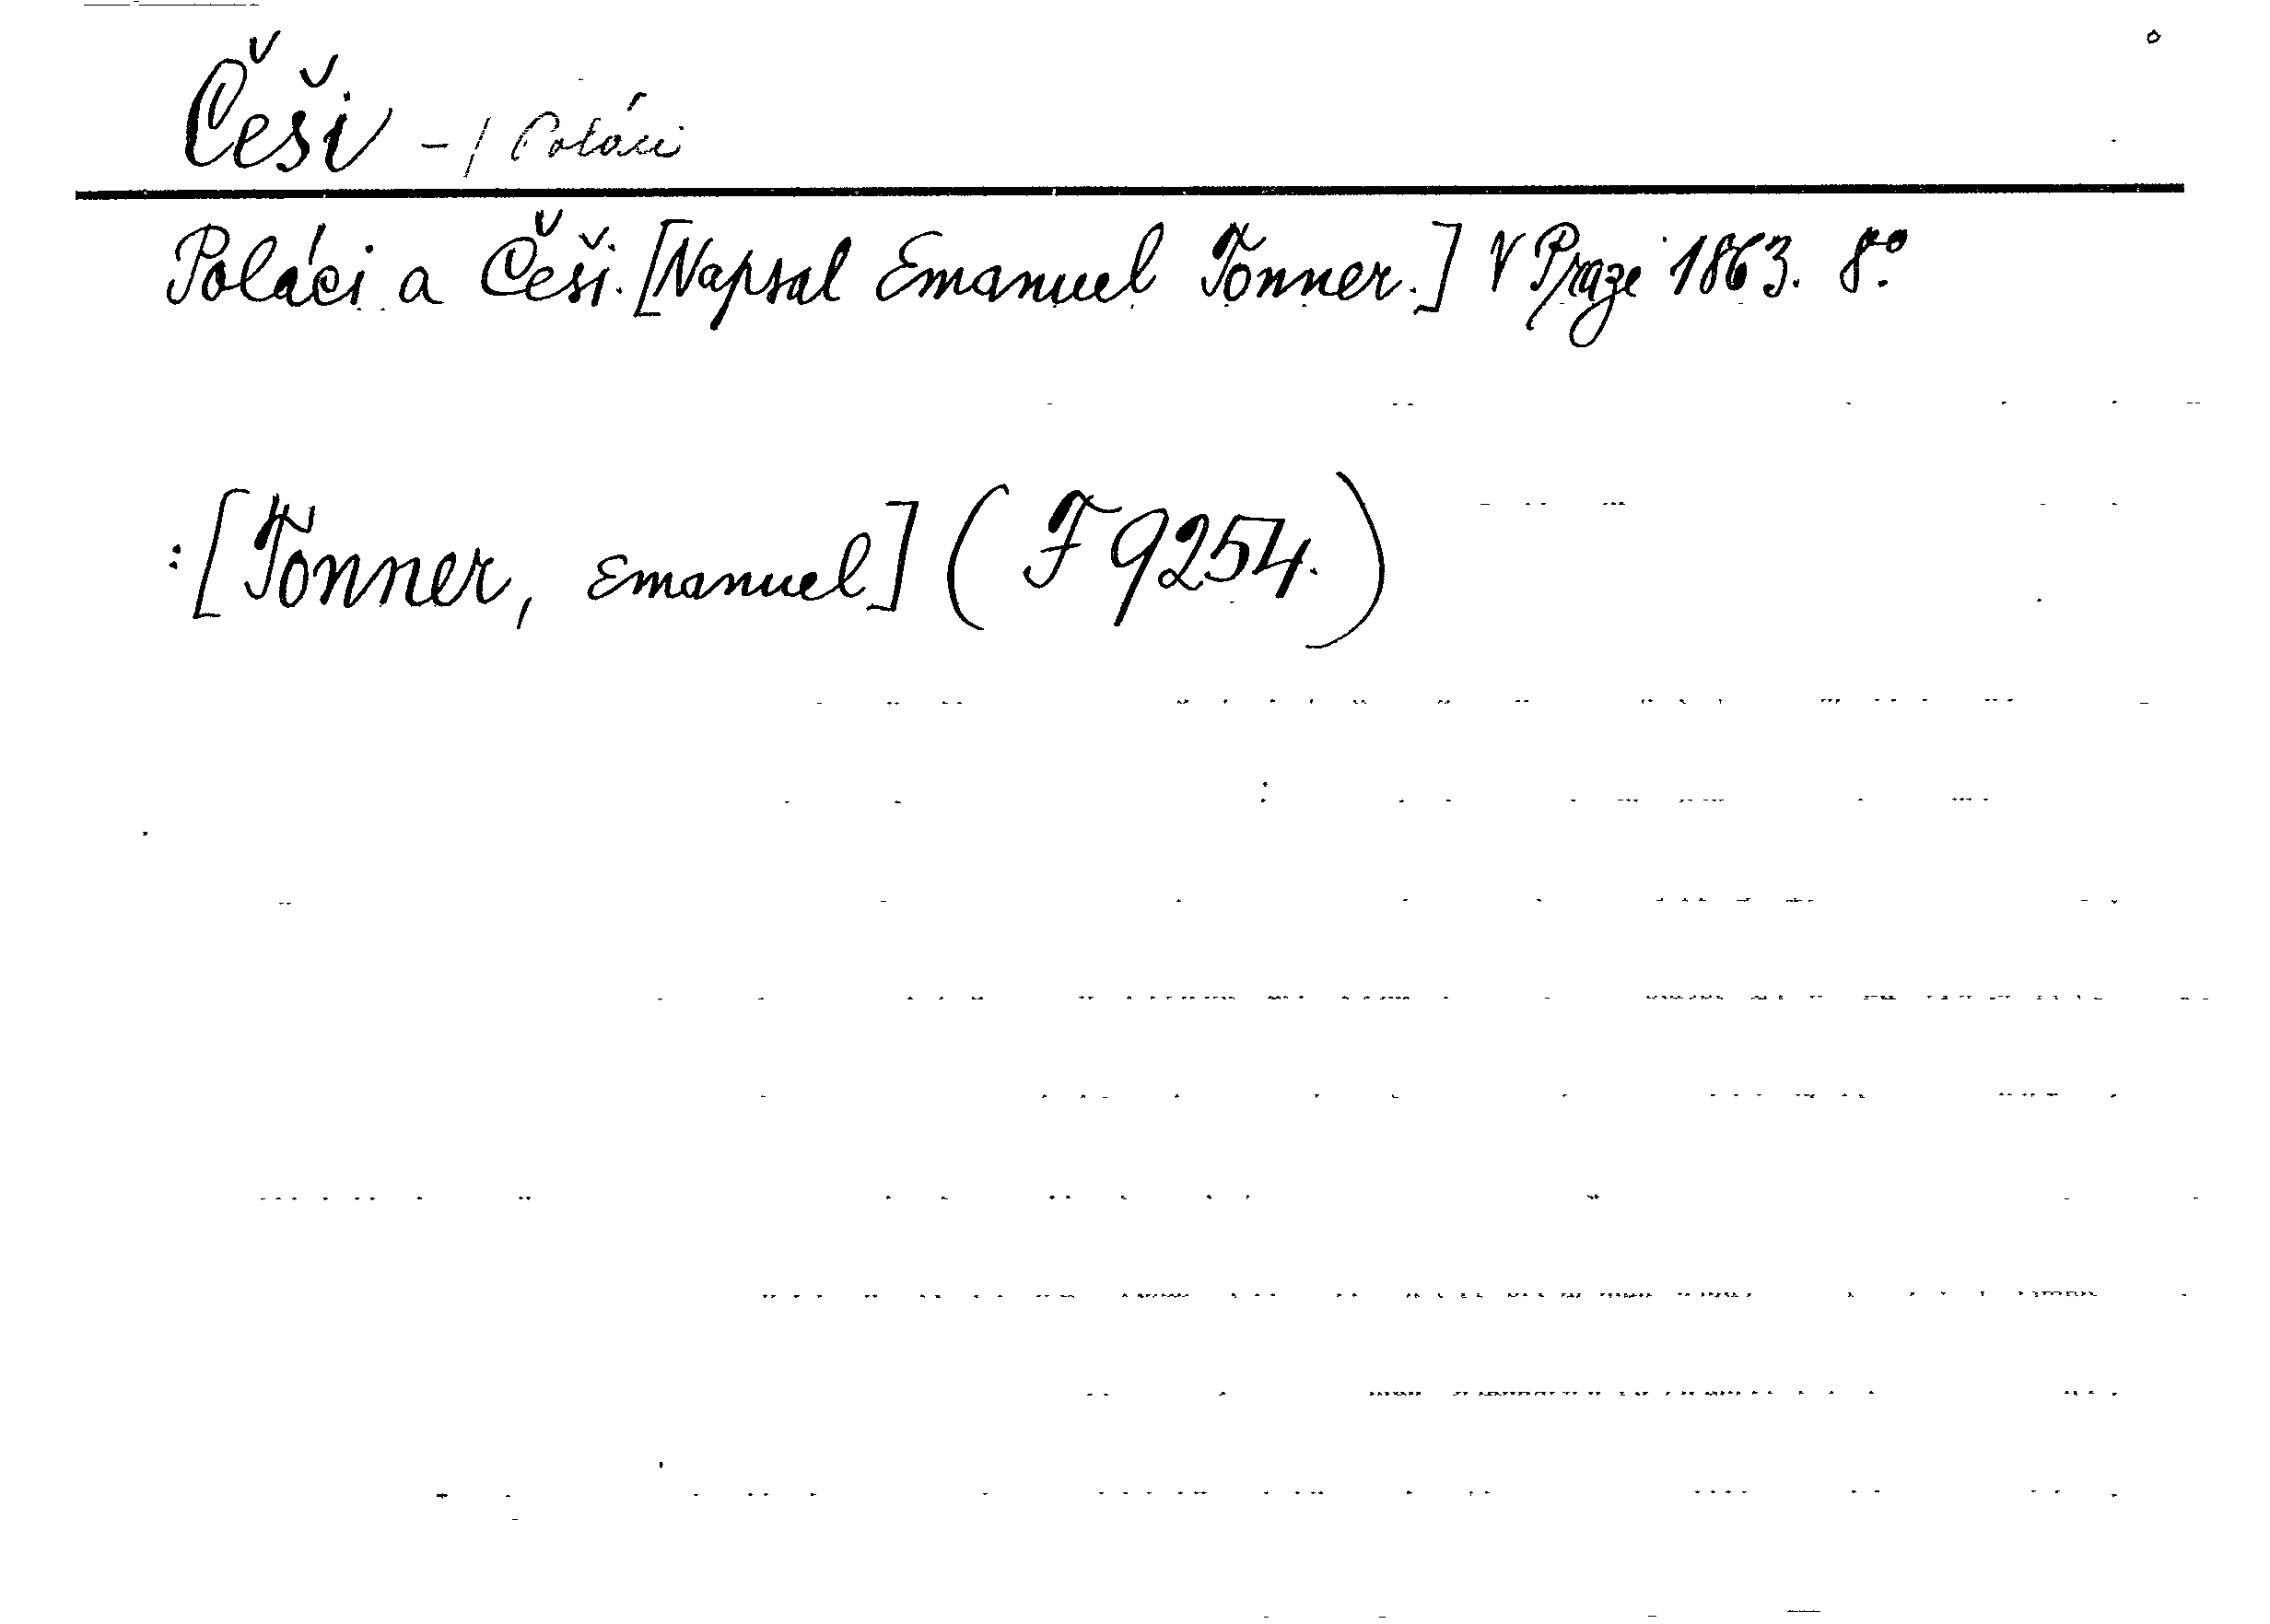 Češi - / Poláci
Poláci a Češi. [Napsal Emanuel Tonner.] V Praze 1863. 8°.
: [Tonner, Emanuel] (F 9254.)